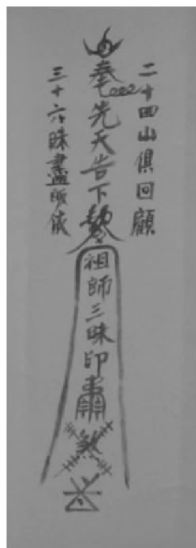 二十四山俱回顧
奉先天告下
祖師三昧印
煞
三十六昧盡皈依